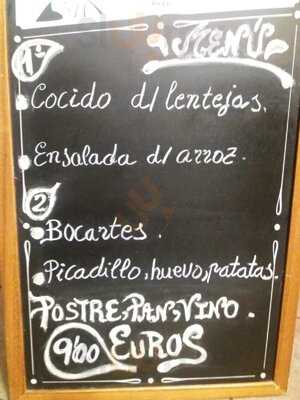 MENÚ
1º
Cocido d/ lentejas.
Ensalada d/ arroz.
2
Bocartes.
Picadillo, huevo, patatas.
POSTRE, PAN, VINO.
9'00 EUROS